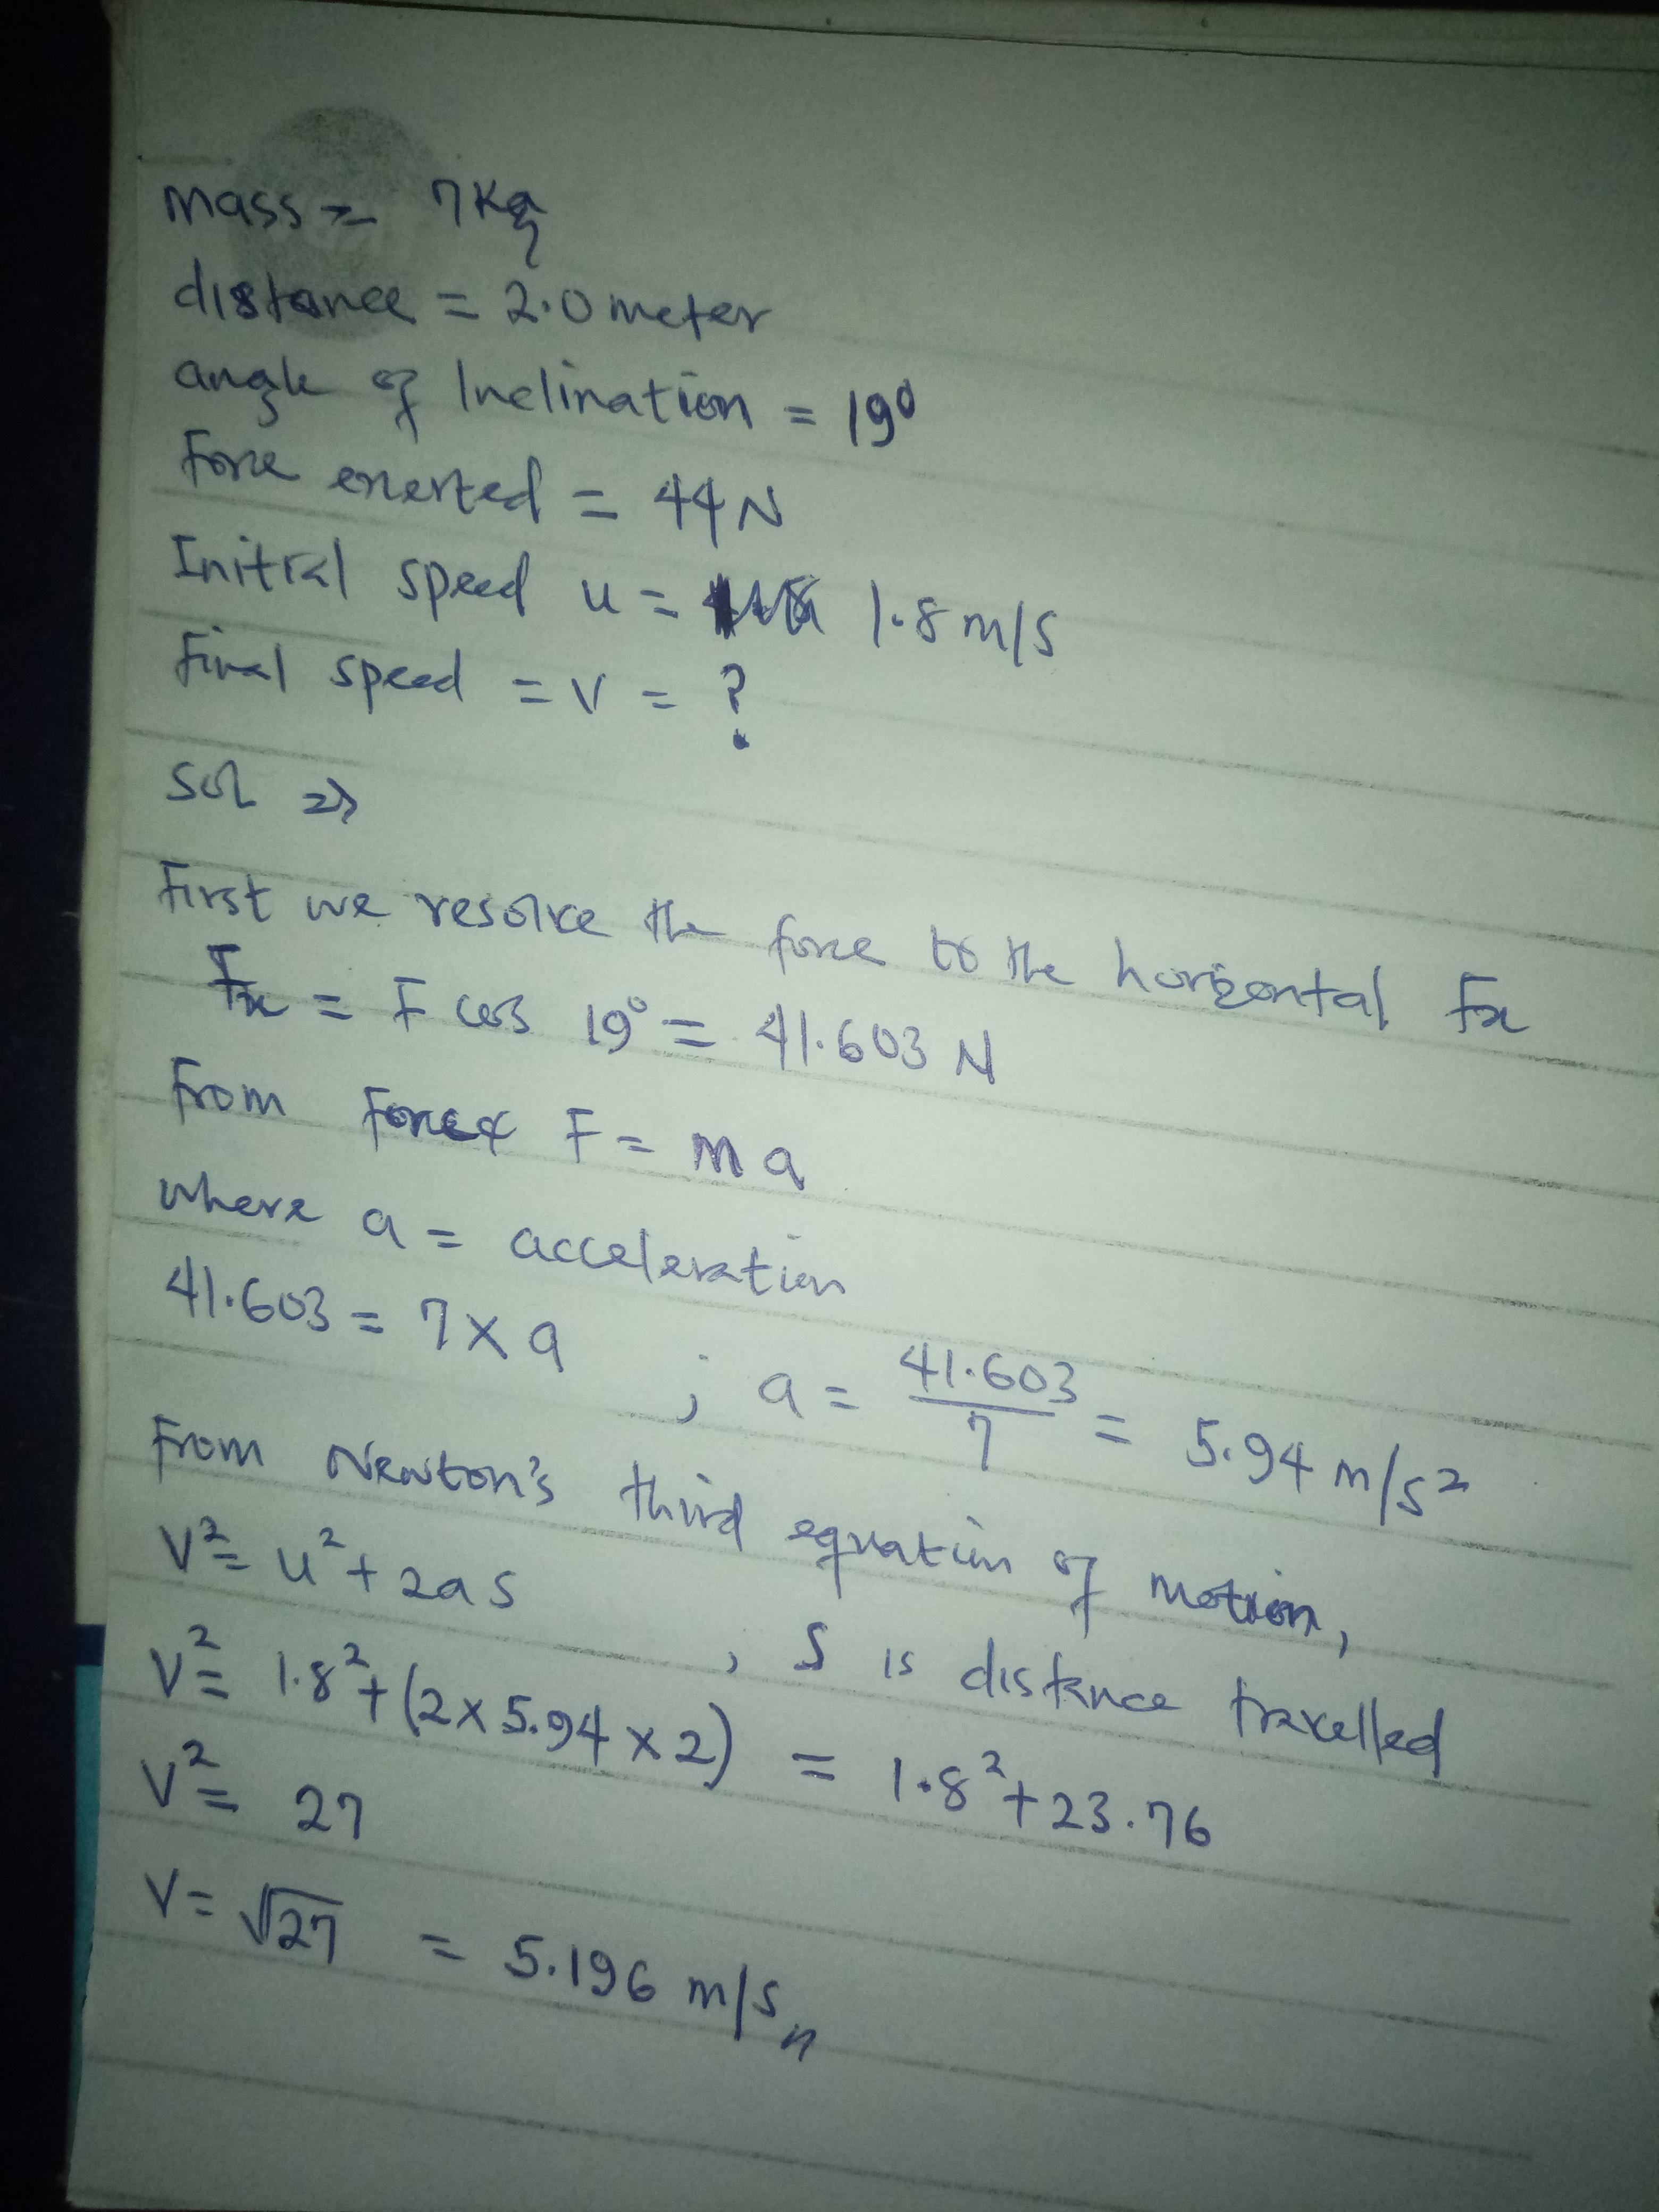 mass = 7Kg
distance = 2.0 meter
angle of Inclination = 19°
Force exerted = 44N
Initial speed u = 1.8 m/s
Final speed = v = ?
Sol ⇒
First we resolve the force to the horizontal Fx
Fx = F cos 19° = 41.603 N
From Force F = ma
where a = acceleration
41.603 = 7 × a ; a = 41.603/7 = 5.94 m/s²
From Newton's third equation of motion,
V² = u² + 2as , S is distance travelled
V² = 1.8² + (2 × 5.94 × 2) = 1.8² + 23.76
V² = 27
V = √27 = 5.196 m/s